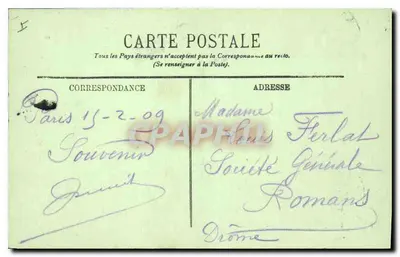 CARTE POSTALE
Tous les Pays étrangers n'acceptent pas la Correspondance au recto.
(Se renseigner à la Poste).
CORRESPONDANCE
ADRESSE
Paris 15-2-09
Souvenir
Madame
Louis Ferlat
Société Générale
Romans
Drôme
CPAPHIL